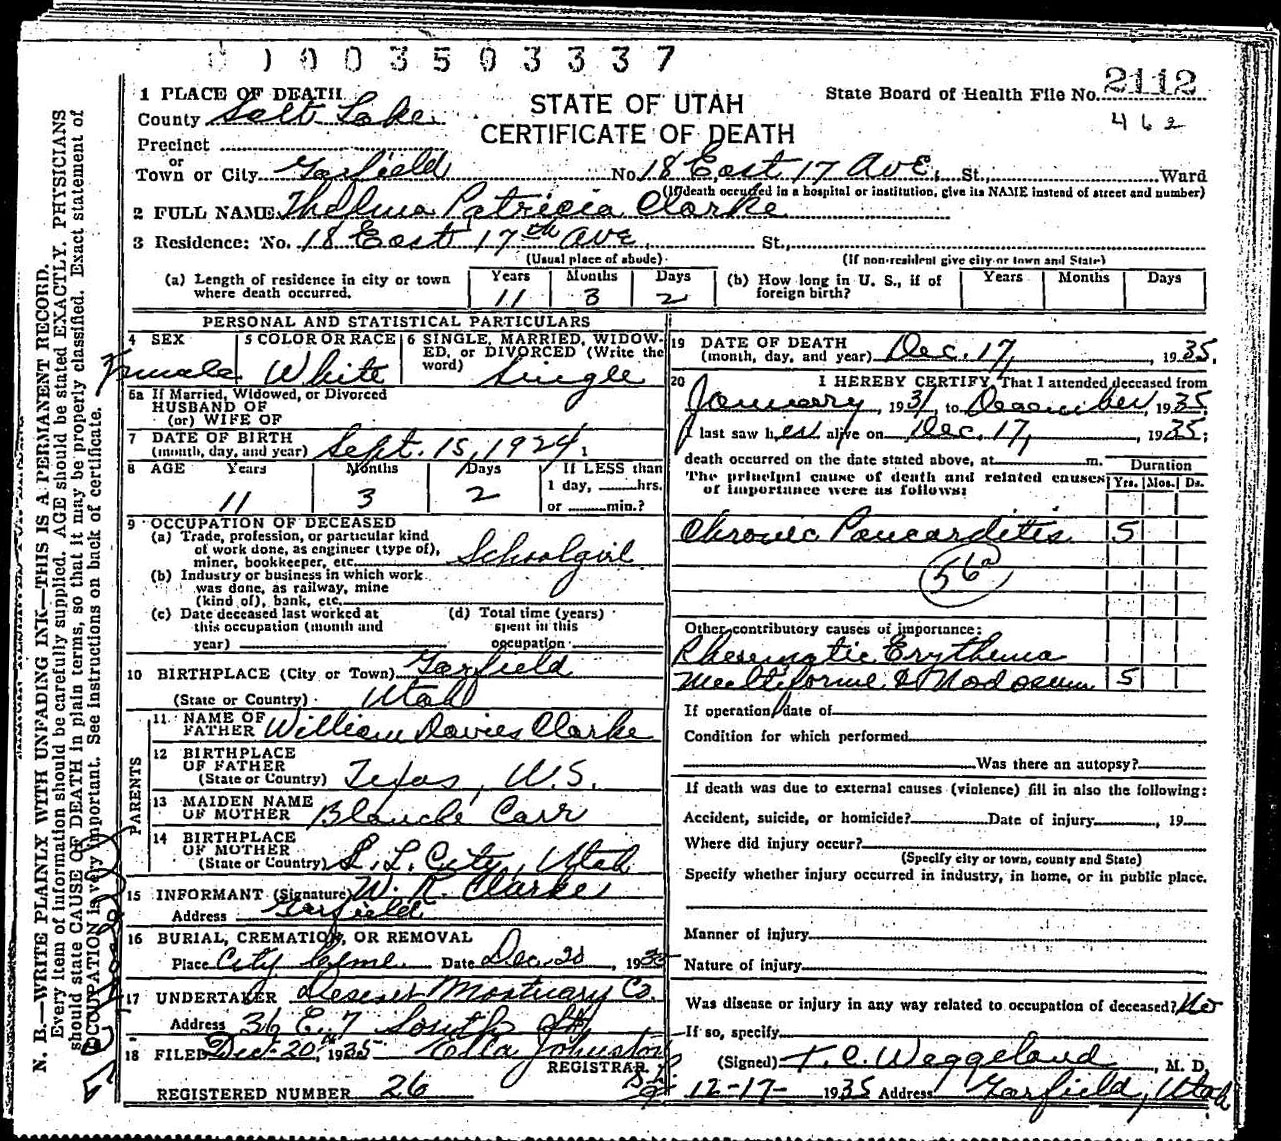 0003503337
1 PLACE OF DEATH
STATE OF UTAH
CERTIFICATE OF DEATH
State Board of Health File No. 2112
462
County Salt Lake
Precinct
or
Town or City Garfield No. 18 East 17 Ave. St., Ward
(If death occurred in a hospital or institution, give its NAME instead of street and number)
2 FULL NAME Thelma Patricia Clarke
3 Residence: No. 18 East 17th Ave. St.,
(Usual place of abode) (If non-resident give city or town and State)
(a) Length of residence in city or town where death occurred. Years 11 Months 3 Days 2
(b) How long in U. S., if of foreign birth? Years Months Days
PERSONAL AND STATISTICAL PARTICULARS
4 SEX Female
5 COLOR OR RACE White
6 SINGLE, MARRIED, WIDOWED, or DIVORCED (Write the word) Single
6a If Married, Widowed, or Divorced
HUSBAND OF
(or) WIFE OF
7 DATE OF BIRTH
(month, day, and year) Sept. 15, 1924 1
8 AGE Years 11 Months 3 Days 2 If LESS than 1 day, hrs. or min.?
9 OCCUPATION OF DECEASED
(a) Trade, profession, or particular kind
of work done, as engineer (type of),
miner, bookkeeper, etc. Schoolgirl
(b) Industry or business in which work
was done, as railway, mine
(kind of), bank, etc.
(c) Date deceased last worked at
this occupation (month and
year)
(d) Total time (years)
spent in this
occupation
10 BIRTHPLACE (City or Town) Garfield
(State or Country) Utah
PARENTS
11 NAME OF FATHER William Davies Clarke
12 BIRTHPLACE OF FATHER
(State or Country) Texas, U.S.
13 MAIDEN NAME OF MOTHER Blanche Carr
14 BIRTHPLACE OF MOTHER
(State or Country) S. L. City, Utah
15 INFORMANT (Signature) W. R. Clarke
Address Garfield
16 BURIAL, CREMATION, OR REMOVAL
Place City Ceme. Date Dec. 20, 1935
17 UNDERTAKER Deseret Mortuary Co.
Address 36 E. 7 South St.
18 FILED Dec. 20, 1935 Ella Johnston
REGISTRAR
REGISTERED NUMBER 26
19 DATE OF DEATH
(month, day, and year) Dec. 17, 1935.
20 I HEREBY CERTIFY, That I attended deceased from
January, 1931, to December, 1935,
I last saw her alive on Dec. 17, 1935;
death occurred on the date stated above, at m.
The principal cause of death and related causes
of importance were as follows:
Duration
Yrs. Mos. Ds.
Chronic Pancarditis 5
56a
Other contributory causes of importance:
Rheumatic Erythema
Multiforme & Nodosum 5
If operation, date of
Condition for which performed
Was there an autopsy?
If death was due to external causes (violence) fill in also the following:
Accident, suicide, or homicide? Date of injury, 19
Where did injury occur?
(Specify city or town, county and State)
Specify whether injury occurred in industry, in home, or in public place.
Manner of injury
Nature of injury
Was disease or injury in any way related to occupation of deceased? No
If so, specify
(Signed) T. C. Weggeland, M. D.
12-17- 1935 Address Garfield, Utah
N. B.—WRITE PLAINLY WITH UNFADING INK—THIS IS A PERMANENT RECORD.
Every item of information should be carefully supplied. AGE should be stated EXACTLY. PHYSICIANS
should state CAUSE OF DEATH in plain terms, so that it may be properly classified. Exact statement of
OCCUPATION is very important. See instructions on back of certificate.